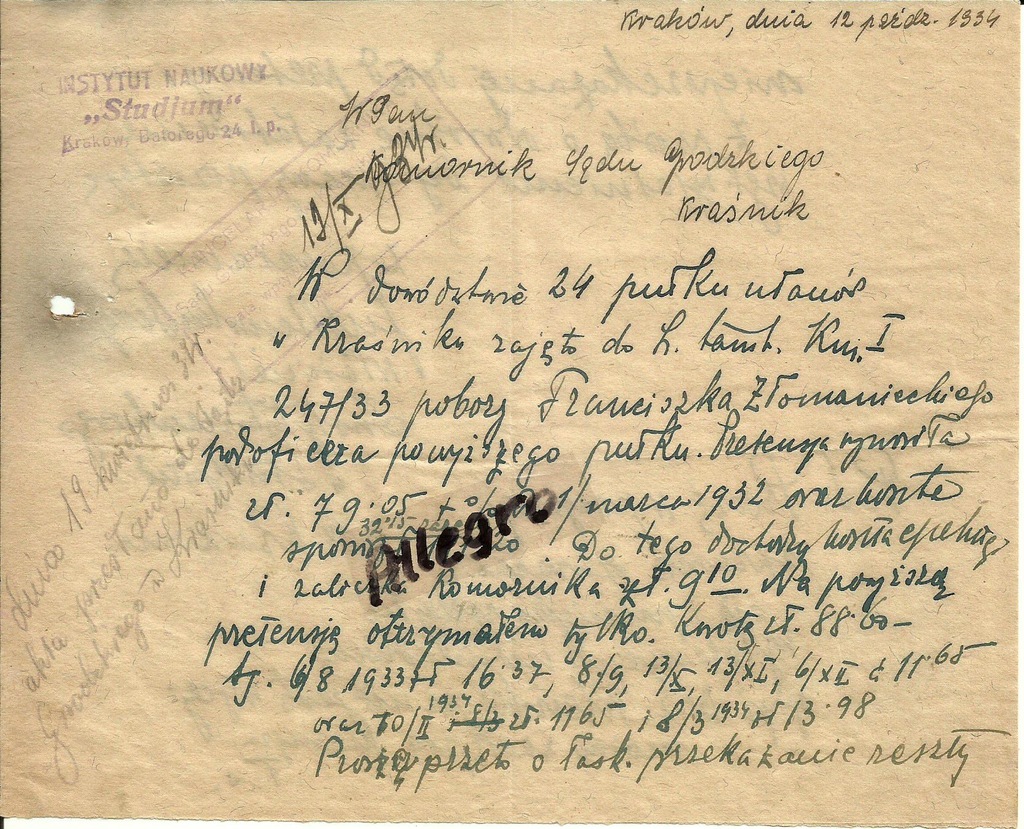 Kraków, dnia 12 paźdz. 1934
INSTYTUT NAUKOWY
„Studjum“
Kraków, Batorego 24 I. p.
WPan
Komornik Sądu Grodzkiego
Kraśnik
12/X 34r.
W dowództwie 24 pułku ułanów
w Kraśniku zajęto do L. tamt. Km. I
247/33 pobory Franciszka Złomanieckiego
podoficera powyższego pułku. Pretensja wynosiła
zł. 79.05 + 1/marca 1932 oraz koszta
32.15
sporu. Do tego dochodzą koszta
i zaliczka Komornika zł. 9 10. Na powyższą
pretensję otrzymałem tylko. Kwotę zł. 88.60
tj. 6/8 1933 zł 16.37, 8/9, 13/X, 13/XI, 6/XII à 11.65
oraz 10/II 1934 zł. 11.65 i 8/3 1934 zł 13.98
Proszę przeto o łask. przekazanie reszty
dnia 19 kwietnia 34r.
akta przesłano do Sądu
Grodzkiego w Kraśniku
Allegro